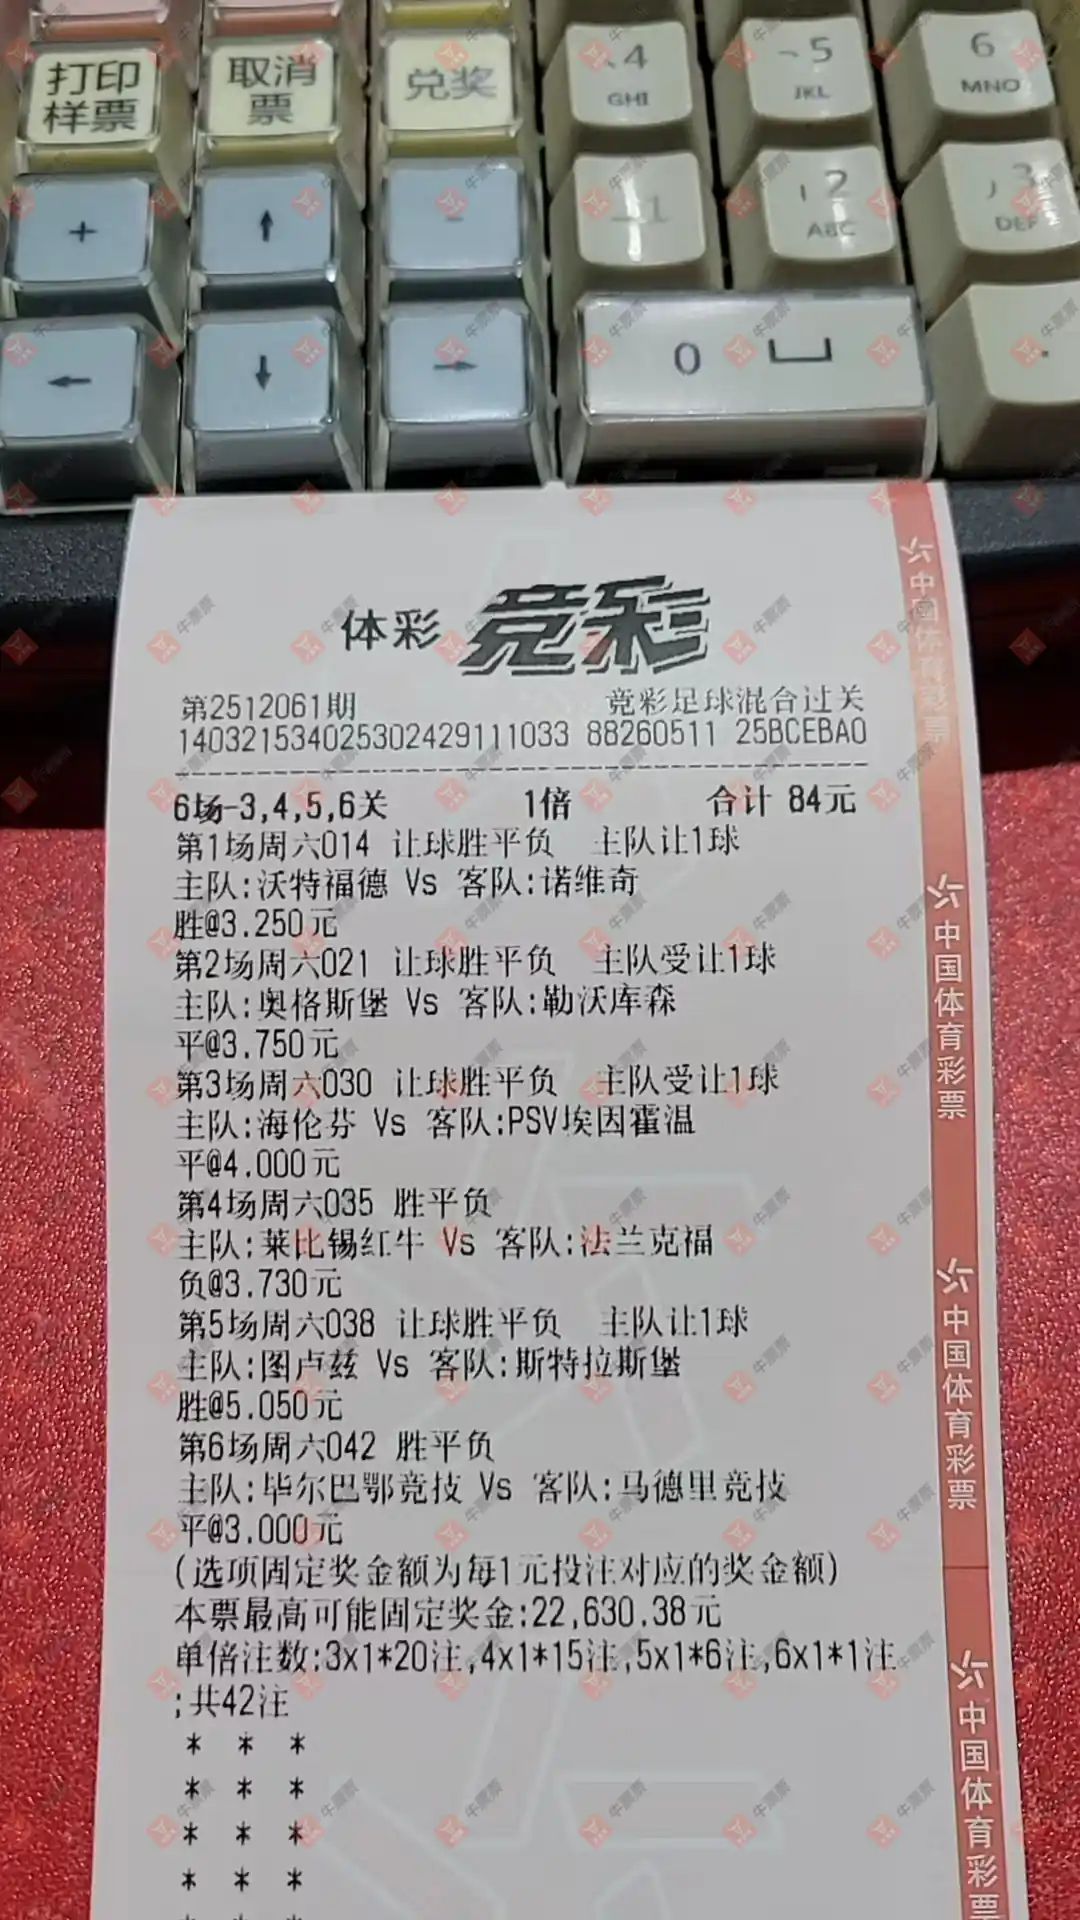 打印 取消 兑奖 4 5 6
样票 票 GHI JKL MNO
+ ↑ - 1 2 3
ABC DEF
← ↓ → 0 .
体彩 竞彩
第2512061期 竞彩足球混合过关
140321534025302429111033 88260511 25BCEBA0
6场-3,4,5,6关 1倍 合计 84元
第1场周六014 让球胜平负 主队让1球
主队:沃特福德 Vs 客队:诺维奇
胜@3.250元
第2场周六021 让球胜平负 主队受让1球
主队:奥格斯堡 Vs 客队:勒沃库森
平@3.750元
第3场周六030 让球胜平负 主队受让1球
主队:海伦芬 Vs 客队:PSV埃因霍温
平@4.000元
第4场周六035 胜平负
主队:莱比锡红牛 Vs 客队:法兰克福
负@3.730元
第5场周六038 让球胜平负 主队让1球
主队:图卢兹 Vs 客队:斯特拉斯堡
胜@5.050元
第6场周六042 胜平负
主队:毕尔巴鄂竞技 Vs 客队:马德里竞技
平@3.000元
(选项固定奖金额为每1元投注对应的奖金额)
本票最高可能固定奖金:22,630.38元
单倍注数:3x1*20注,4x1*15注,5x1*6注,6x1*1注
;共42注
* * *
* * *
* * *
* * *
中国体育彩票
中国体育彩票
中国体育彩票
中国体育彩票
牛票票